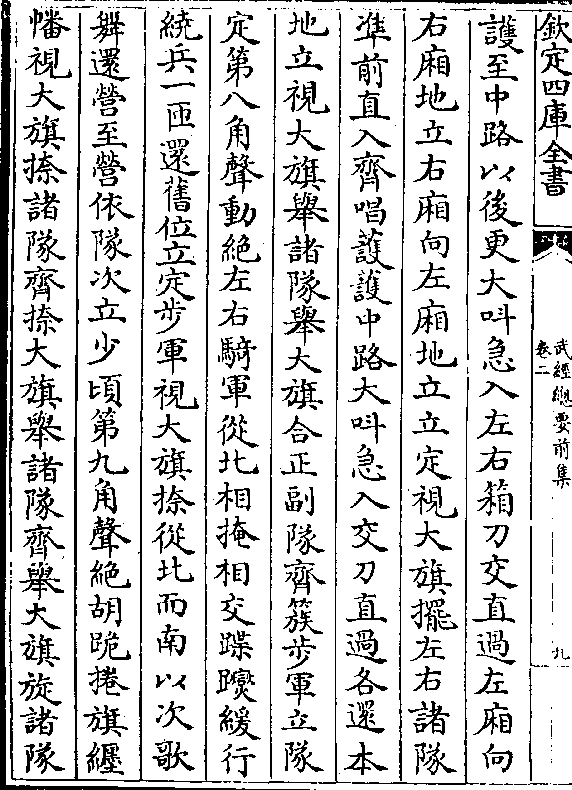 欽定四庫全書
武經總要前集
卷二
九
護至中路以後更大叫急入左右箱刀交直過左廂向
右廂地立右廂向左廂地立立定視大旗擺左右諸隊
準前直入齊唱護護中路大叫急入交刀直過各還本
地立視大旗舉諸隊舉大旗合正副隊齊簇步軍立隊
定第八角聲動絶左右騎軍從北相掩相交蹀躞緩行
繞兵一匝還舊位立定步軍視大旗捺從北而南以次歌
舞還營至營依隊次立少頃第九角聲絶胡跪捲旗纒
幡視大旗捺諸隊齊捺大旗舉諸隊齊舉大旗旋諸隊